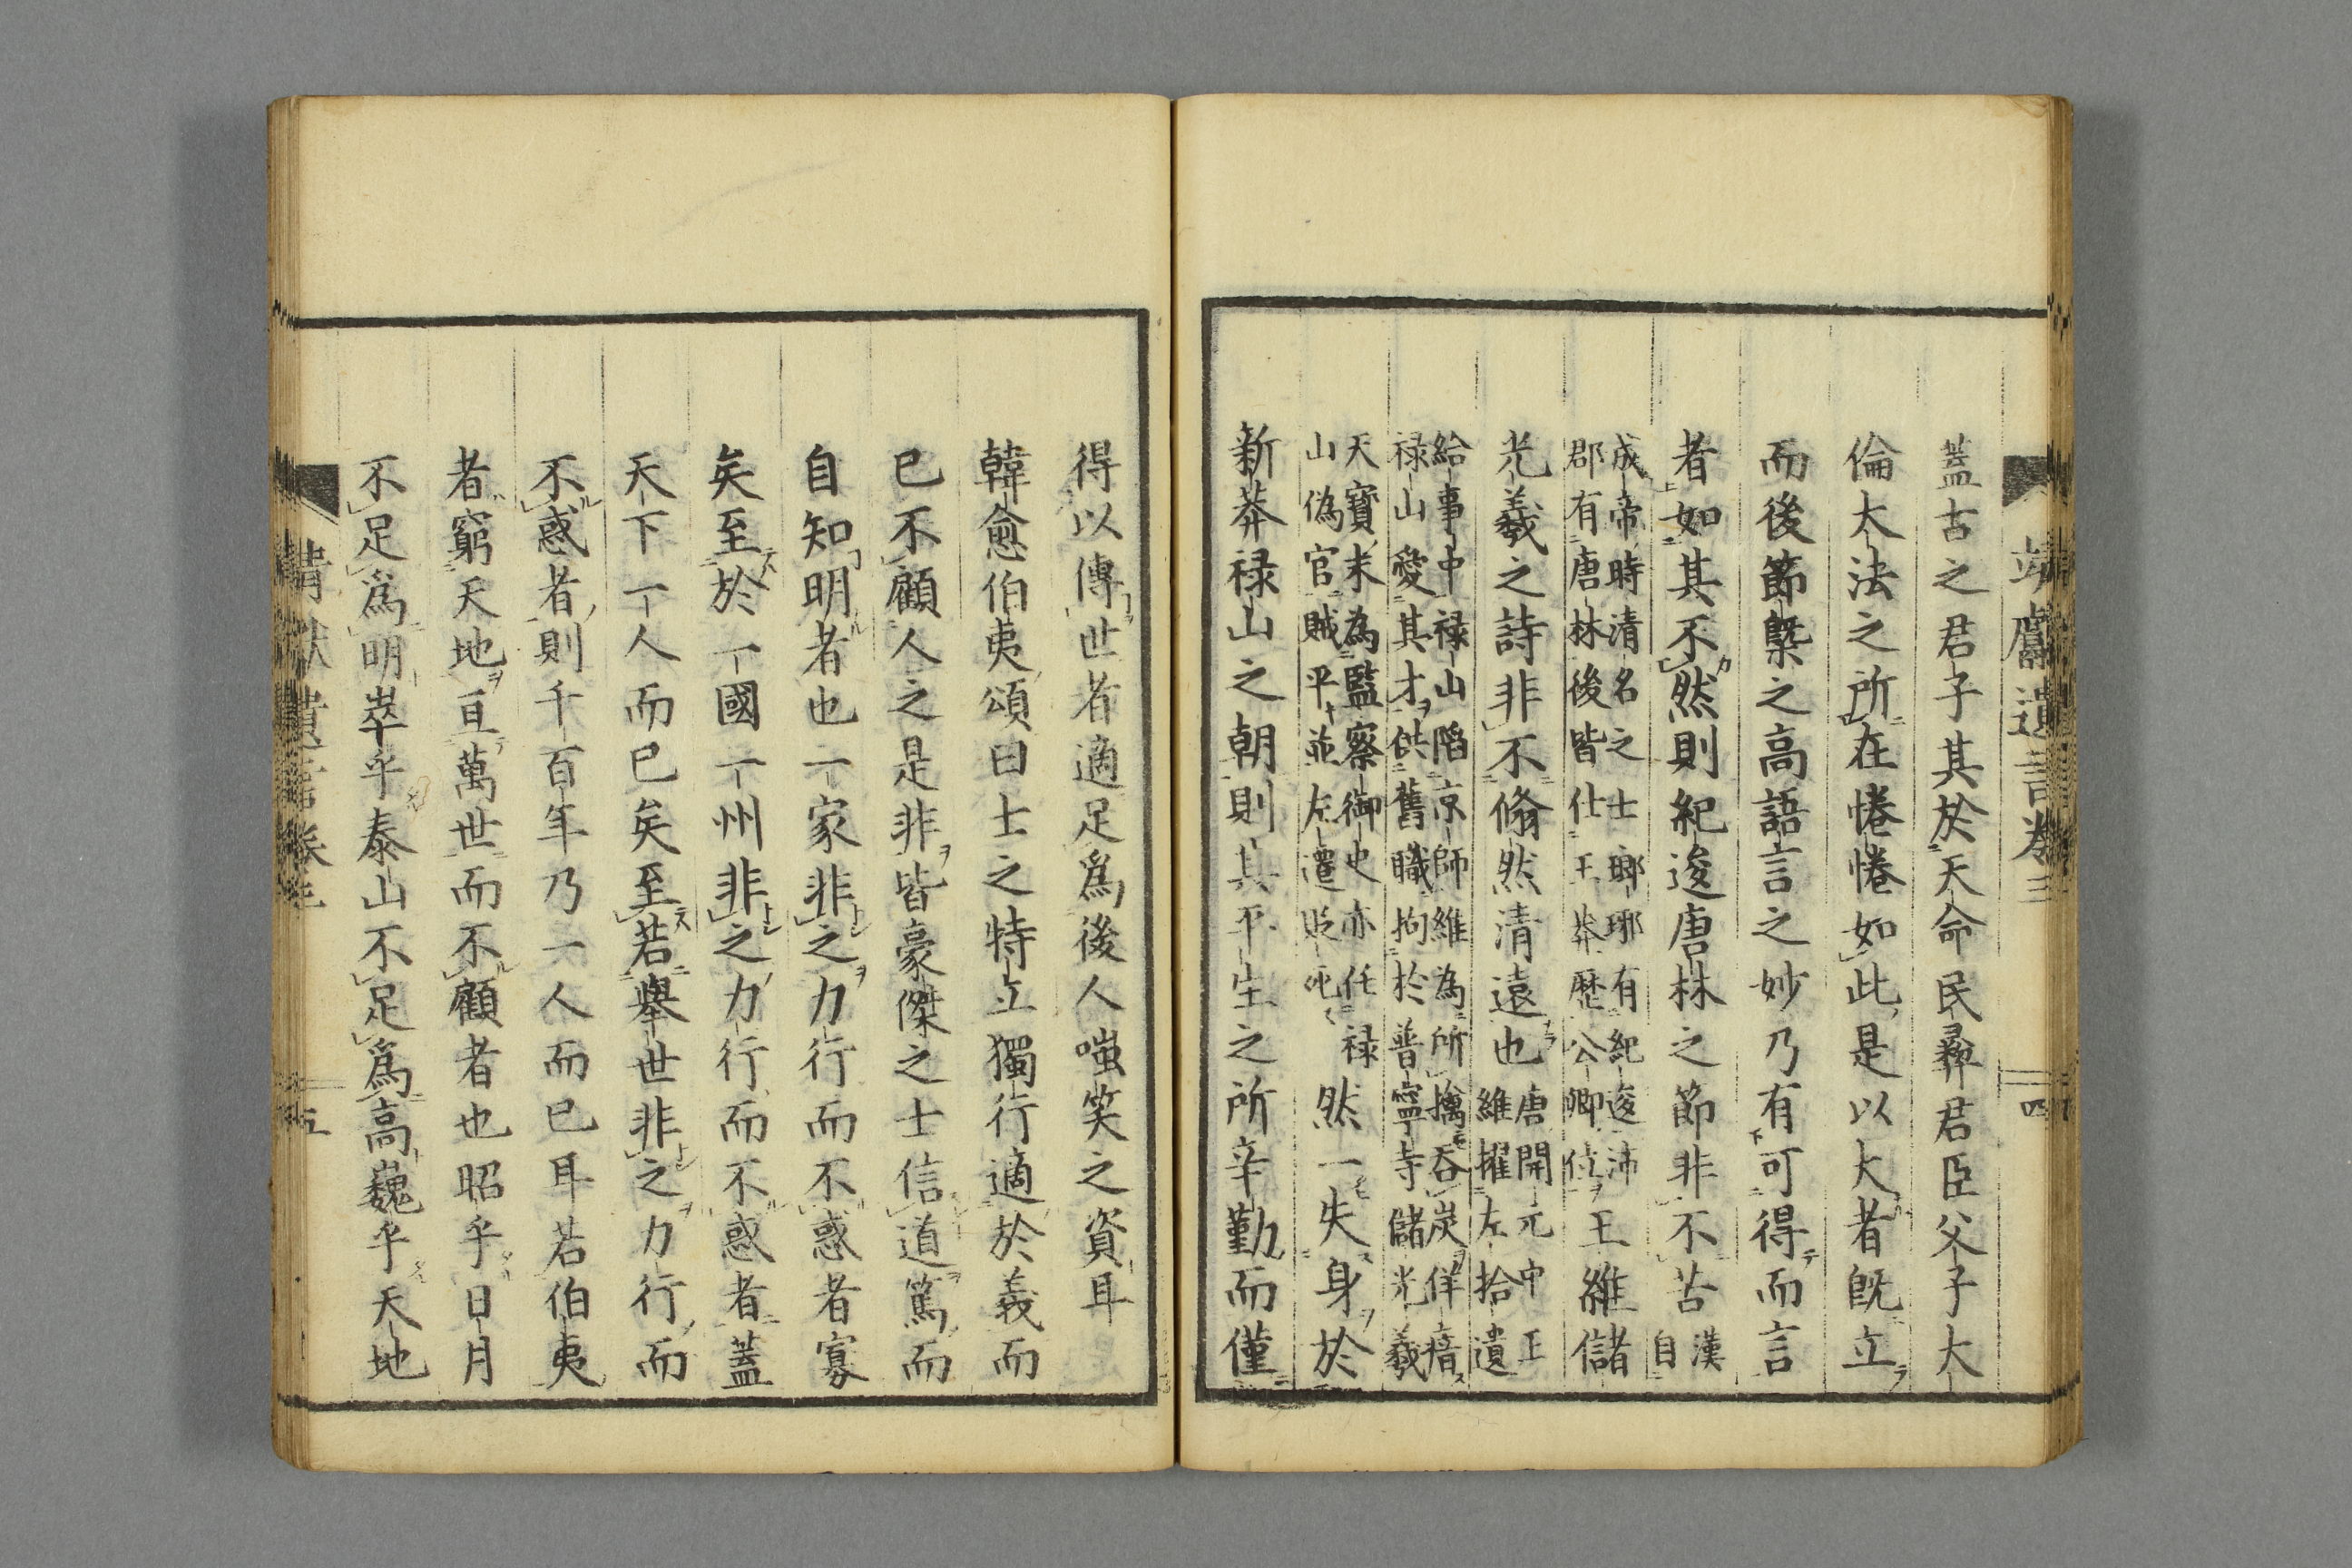 靖獻遺言卷三
四
蓋古之君子其於天命民彛君臣父子大
倫大法之所在惓惓如此是以大者既立
而後節槩之高語言之妙乃有可得而言
者如其不然則紀逡唐林之節非不苦漢自
成帝時清名之士琅琊有紀逡沛
郡有唐林後皆仕王莽歴公卿位王維儲
光羲之詩非不翛然清遠也唐開元中王維擢左拾遺
給事中禄山陷京師維為所擒吞炭佯瘖
禄山愛其才供舊職拘於普寧寺儲光羲
天寶末為監察御史亦任禄
山偽官賊平並左遷貶死然一失身於
新莽禄山之朝則其平生之所辛勤而僅
得以傳世者適足爲後人嗤笑之資耳
韓愈伯夷頌曰士之特立獨行適於義而
已不顧人之是非皆豪傑之士信道篤而
自知明者也一家非之力行而不惑者寡
矣至於一國一州非之力行而不惑者蓋
天下一人而已矣至若舉世非之力行而
不惑者則千百年乃一人而已耳若伯夷
者窮天地亘萬世而不顧者也昭乎日月
不足爲明崒乎泰山不足爲高巍乎天地
五